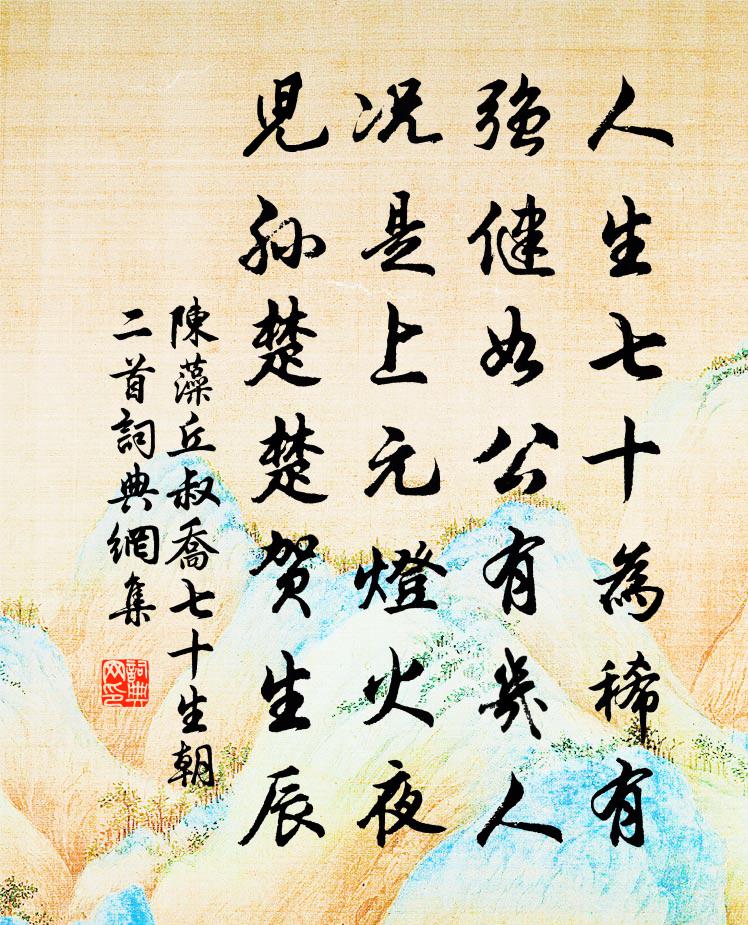 人生七十為稀有
強健如公有幾人
況是上元燈火夜
児孫楚楚賀生辰
陳藻丘叔喬七十生朝
二首詞典網集
詞典
网印